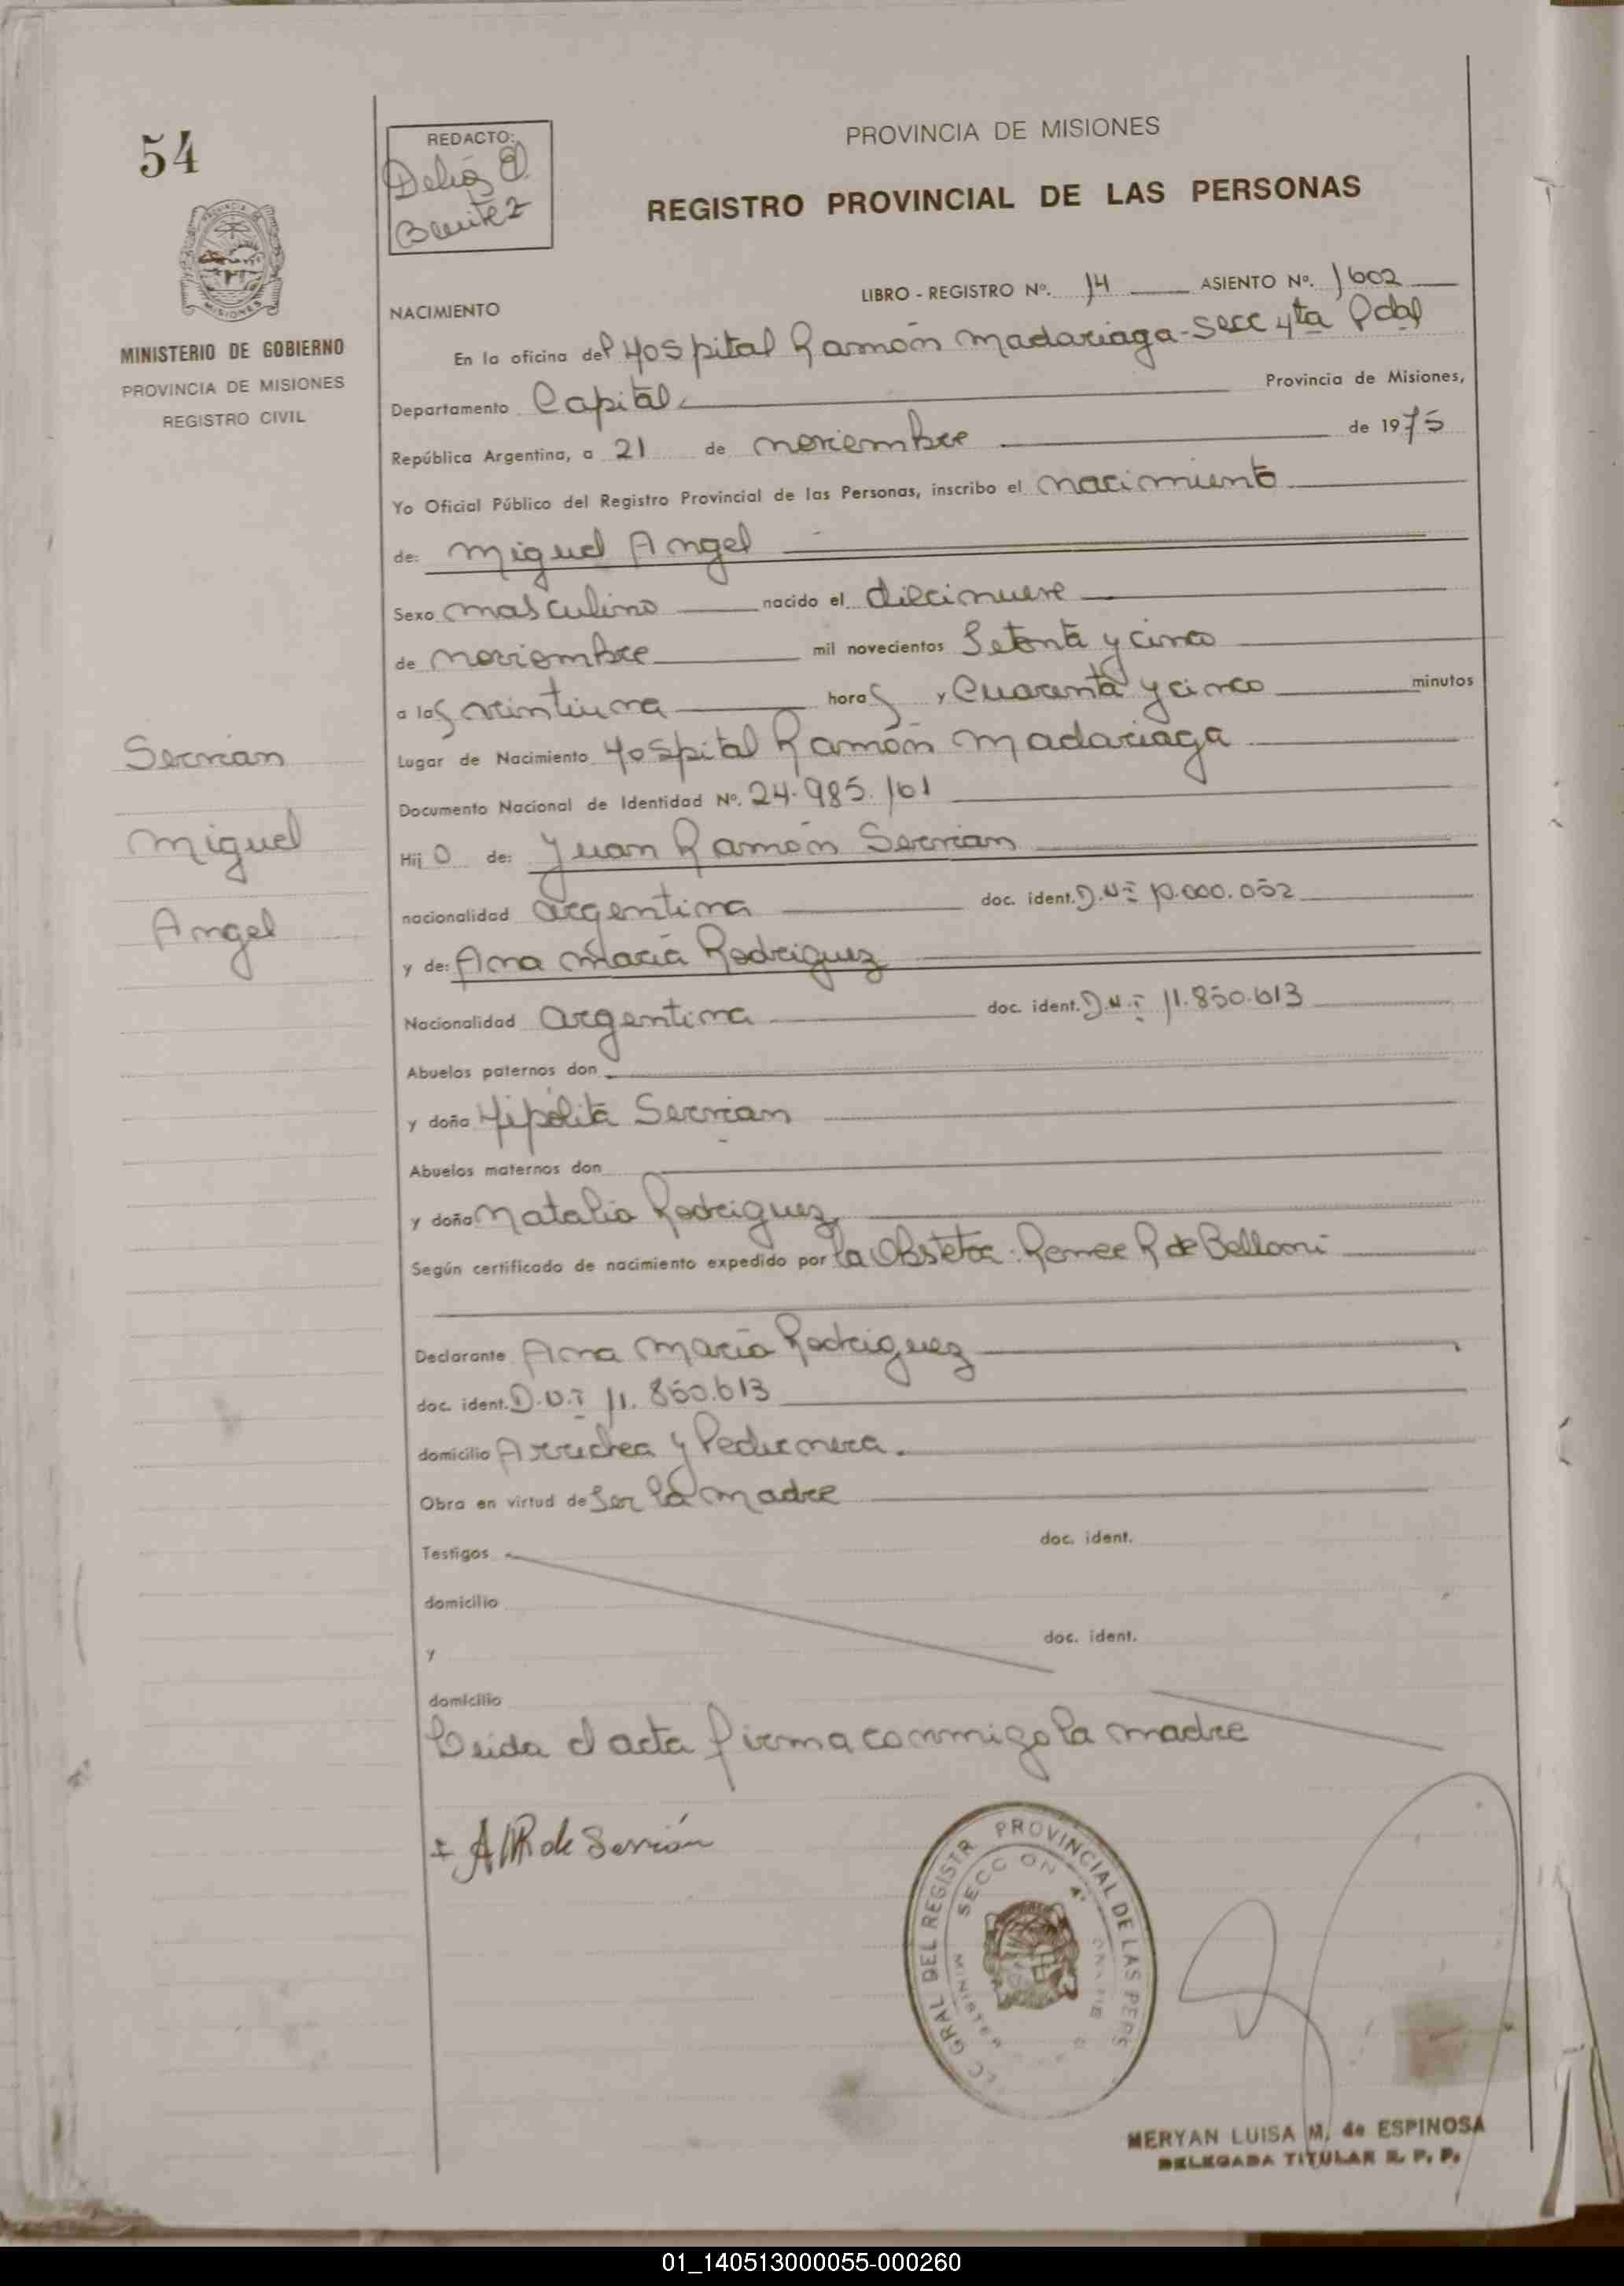 54
REDACTO:
Delia E.
Benitez
PROVINCIA DE MISIONES
REGISTRO PROVINCIAL DE LAS PERSONAS
MINISTERIO DE GOBIERNO
PROVINCIA DE MISIONES
REGISTRO CIVIL
LIBRO - REGISTRO Nº. 14 ASIENTO Nº. 1602
NACIMIENTO
En la oficina del Hospital Ramón Madariaga - Secc 4ta Pdal
Departamento Capital Provincia de Misiones,
República Argentina, a 21 de noviembre de 1975
Yo Oficial Público del Registro Provincial de las Personas, inscribo el nacimiento
de: Miguel Angel
Sexo masculino nacido el diecinueve
de noviembre mil novecientos Setenta y cinco
a las veintiuna horas y Cuarenta y cinco minutos
Lugar de Nacimiento Hospital Ramón Madariaga
Documento Nacional de Identidad Nº. 24.985.101
Hijo de: Juan Ramón Servian
nacionalidad argentina doc. ident. D.N.I 10.000.052
y de: Ana María Rodriguez
Nacionalidad argentina doc. ident. D.N.I 11.850.613
Abuelos paternos don
y doña Hipólita Servian
Abuelos maternos don
y doña Natalia Rodriguez
Según certificado de nacimiento expedido por la Obstetra: Renee R de Belloni
Declarante Ana María Rodriguez
doc. ident. D.N.I 11.850.613
domicilio Arrechea y Pedernera.
Obra en virtud de Ser la madre
Testigos doc. ident.
domicilio
y doc. ident.
domicilio
Leida el acta firma conmigo la madre
Servian
Miguel
Angel
+ AMR de Servián
GRAL DEL REGISTR PROVINCIAL DE LAS PERS
SECCION 4ª
MINISTER
MERYAN LUISA M. de ESPINOSA
DELEGADA TITULAR R. P. P.
01_140513000055-000260